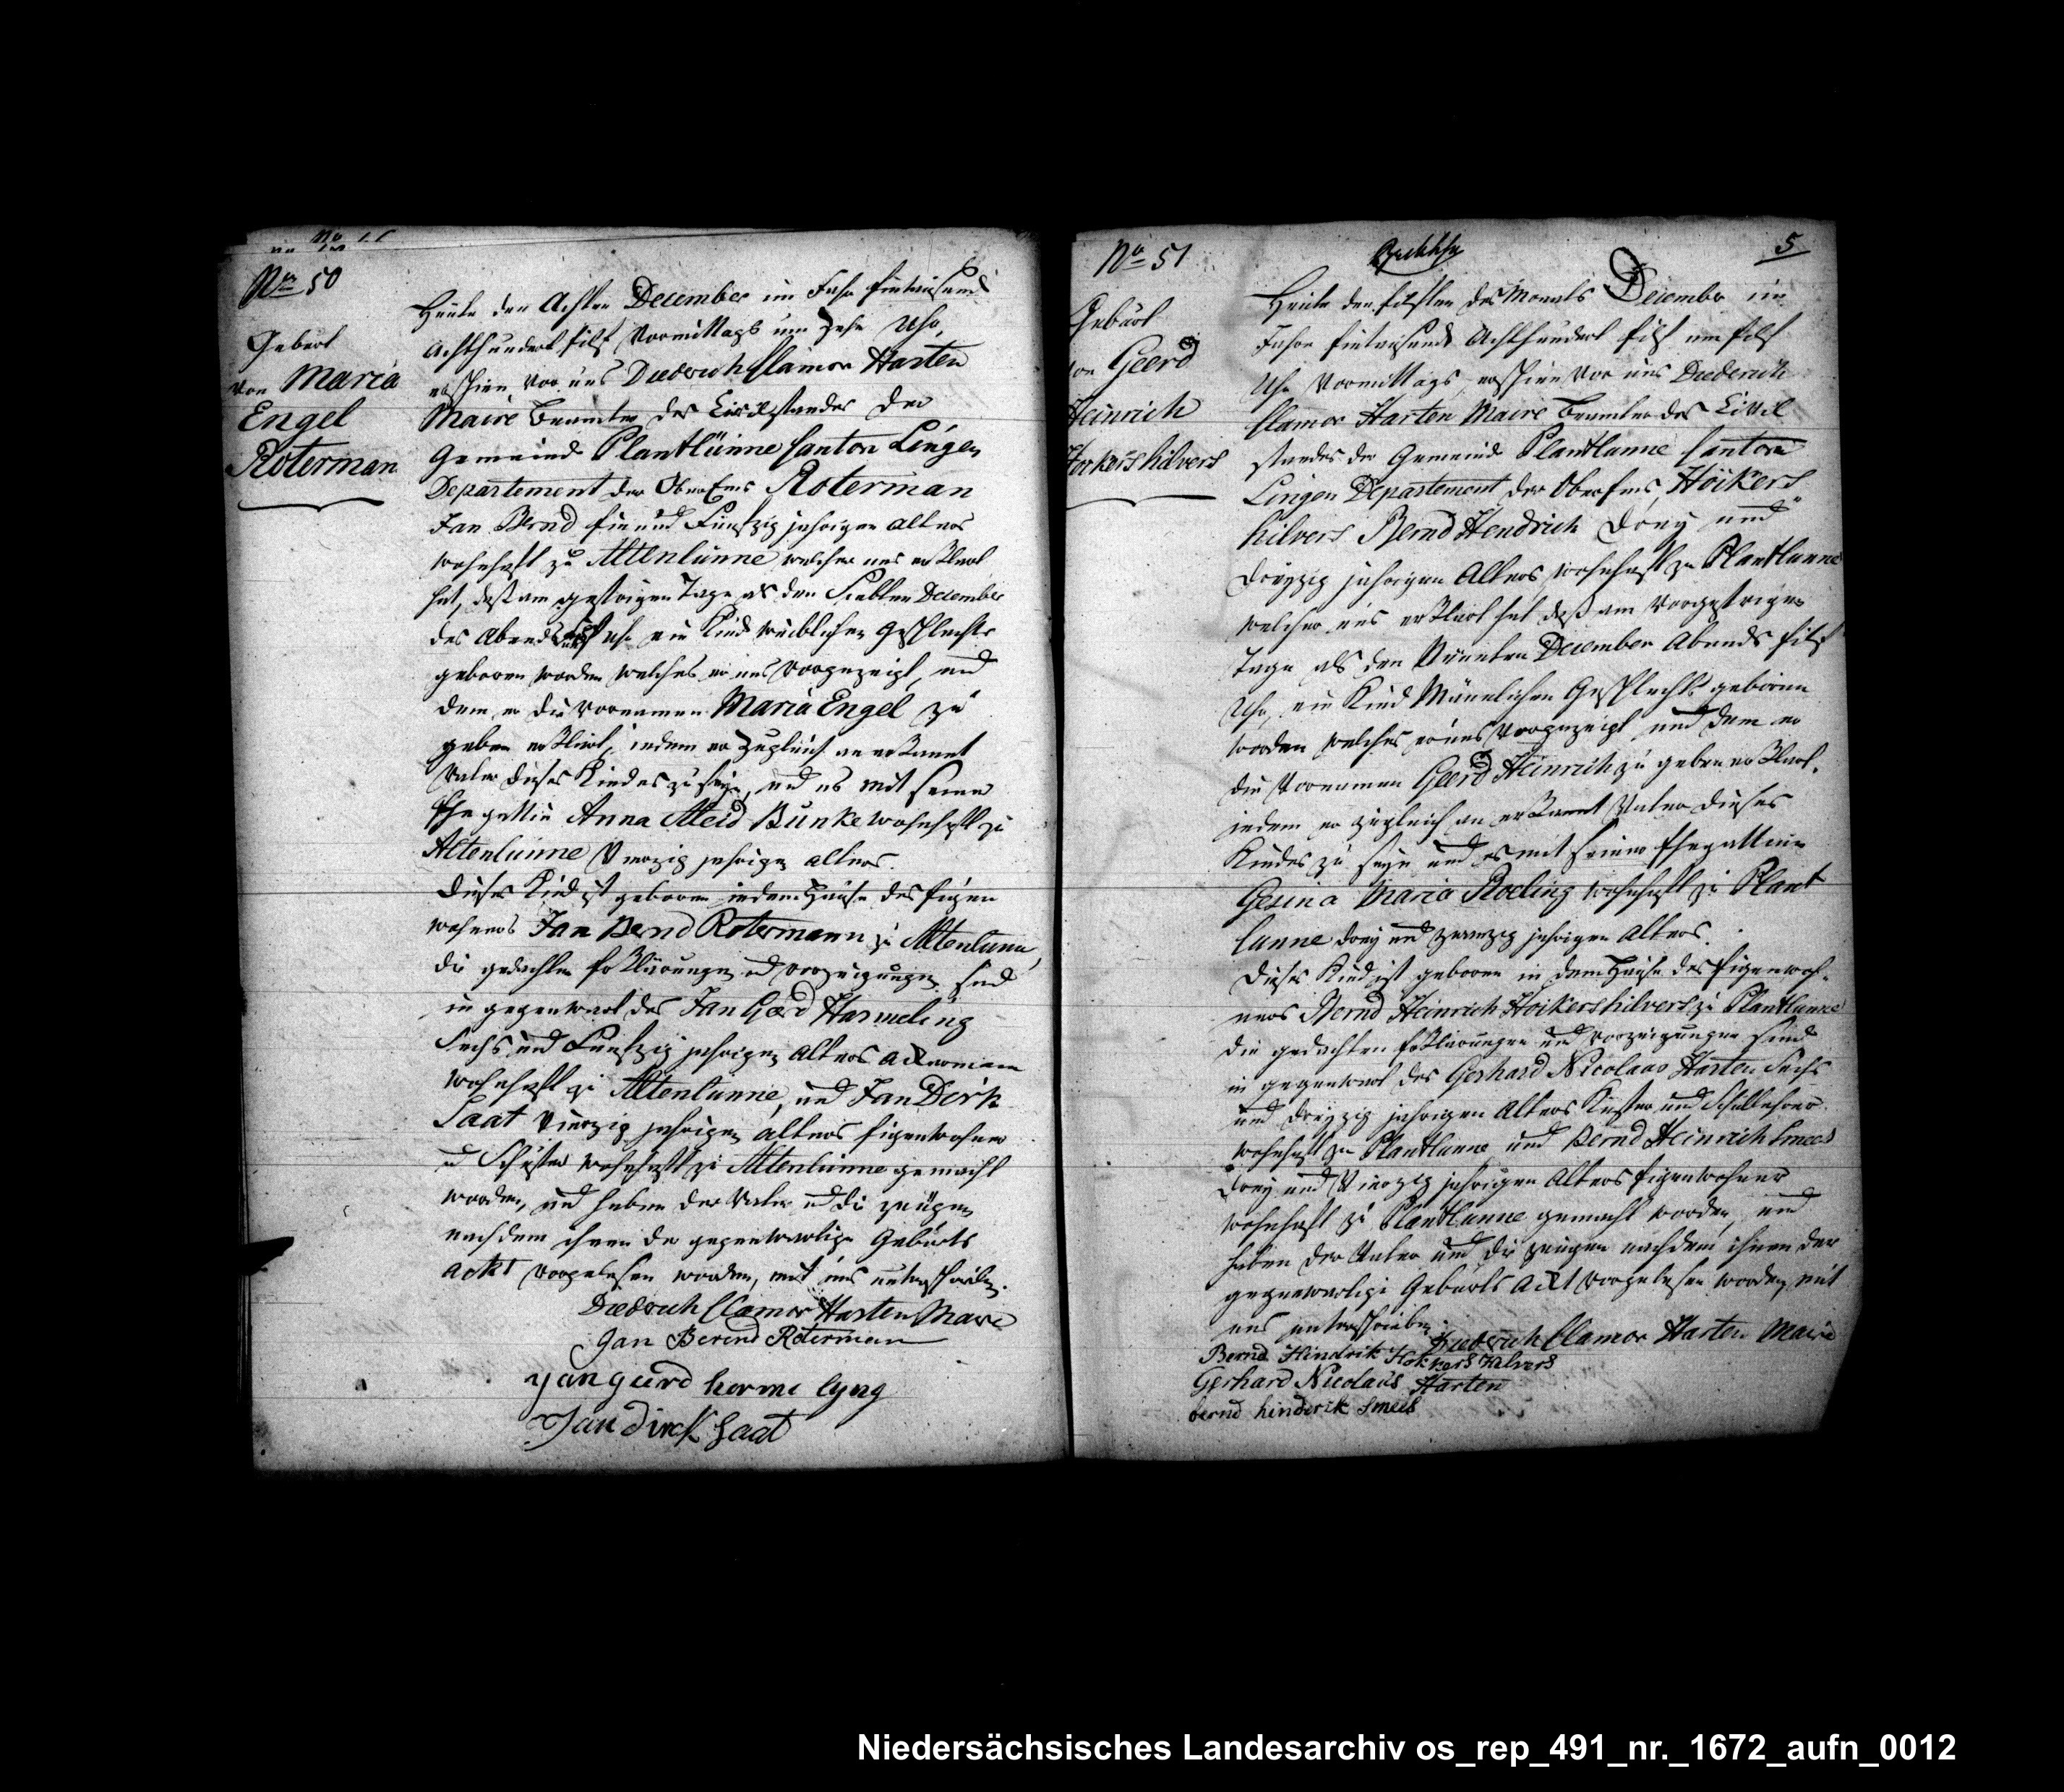 No 50
Geburt
von Maria
Engel
Roterman
Heute den Achten December im Jahr Eintausend
Achthundert Eilf Vormittags um Zehn Uhr,
erschien vor uns Diederich Clamor Harten
Maire Beamter des Civilstandes der
Gemeinde Plantlünne Canton Lingen
Departement der Ober Ems Roterman
Jan Bernd Ein und Fünfzig jahrigen alters
wohnhaft zu Altenlünne welcher uns erklart
hat, daß am gestrigen Tage als den Siebten December
des Abends Uhr ein Kind weiblichen Geschlechts
geboren worden welches er uns vorgezeigt, und
dem er die Vornamen Maria Engel zu
geben erklärt, indem er zugleich an erkannt
Vater dieses Kindes zu seyn, und es mit seiner
Ehegattin Anna Aleid Bunke wohnhaft zu
Altenlünne Vierzig jahrigen alters.
Dieses Kind ist geboren in dem Hause des Eigen
wohners Jan Bernd Rotermann zu Altenlünne,
die gedachten Erklärungen und vorzeigungen sind
in gegenwart des Jan Gerd Harmeling
Sechs und Funfzig jahrigen Alters Ackersmann
wohnhaft zu Altenlünne, und Jan Dirk
Saat Vierzig jahrigen alters Eigenwohner
u Schuster wohnhaft zu Altenlünne gemacht
worden, und haben der Vater und die zeugen
nachdem ihnen der gegenwartige Geburts
ackt vorgelesen worden, mit uns unterschrieben.
Diederich Clamor Harten Maire
Jan Berend Roterman
yan geerd herme lyng
Jan dirck Saat
No 51
5
Geburt
von Geerd
Heinrich
Hoikershilvers
Heute den Eilften des Monats December im
Jahre Eintausend Achthundert Eilf um Eilf
Uhr Vormittags, erschien vor uns Diederich
Clamor Harten Maire Beamter des Civil
standes der Gemeinde Plantlunne Canton
Lingen Departement der Ober Ems, Hoikers
hilvers Bernd Hendrich drey und
dreyzig jahrigen Alters, wohnhaft zu Plantlunne
welcher uns erklart hat daß am Vorgestrigen
Tage als den Neunten December Abends Eilf
Uhr, ein Kind Männlichen Geschlechts geboren
worden welches er uns vorgezeigt und dem er
die Vornamen Geerd Heinrich zu geben erklart.
indem er zugleich an erkannt Vater dieses
Kindes zu seyn und es mit seiner Ehegattinn
Gesina Maria Roeling wohnhaft zu Plant
lunne drey und zwanzig jahrigen Alters.
Dieses Kind ist geboren in dem Hause des Eigenwoh-
ners Bernd Heinrich Hoikershilvers zu Plantlunne
die gedachten Erklärungen und vorzeigungen sind
in gegenwart des Gerhard Nicolaas Harten Sechs
und dreyzig jahrigen Alters Küster und Schullehrer
wohnhaft zu Plantlunne, und Bernd Heinrich Smees
drey und Vierzig jahrigen Alters Eigenwohner
wohnhaft zu Plantlunne gemacht worden, und
haben der Vater und die zeugen nachdem ihnen der
gegenwartige Geburts Ackt vorgelesen worden, mit
uns unterschrieben.
Diederich Clamor Harten Maire
Bernd Hindrik Hokkers Hilvers
Gerhard Nicolaus Harten
bernd hinderik Smees
Niedersächsisches Landesarchiv os_rep_491_nr._1672_aufn_0012